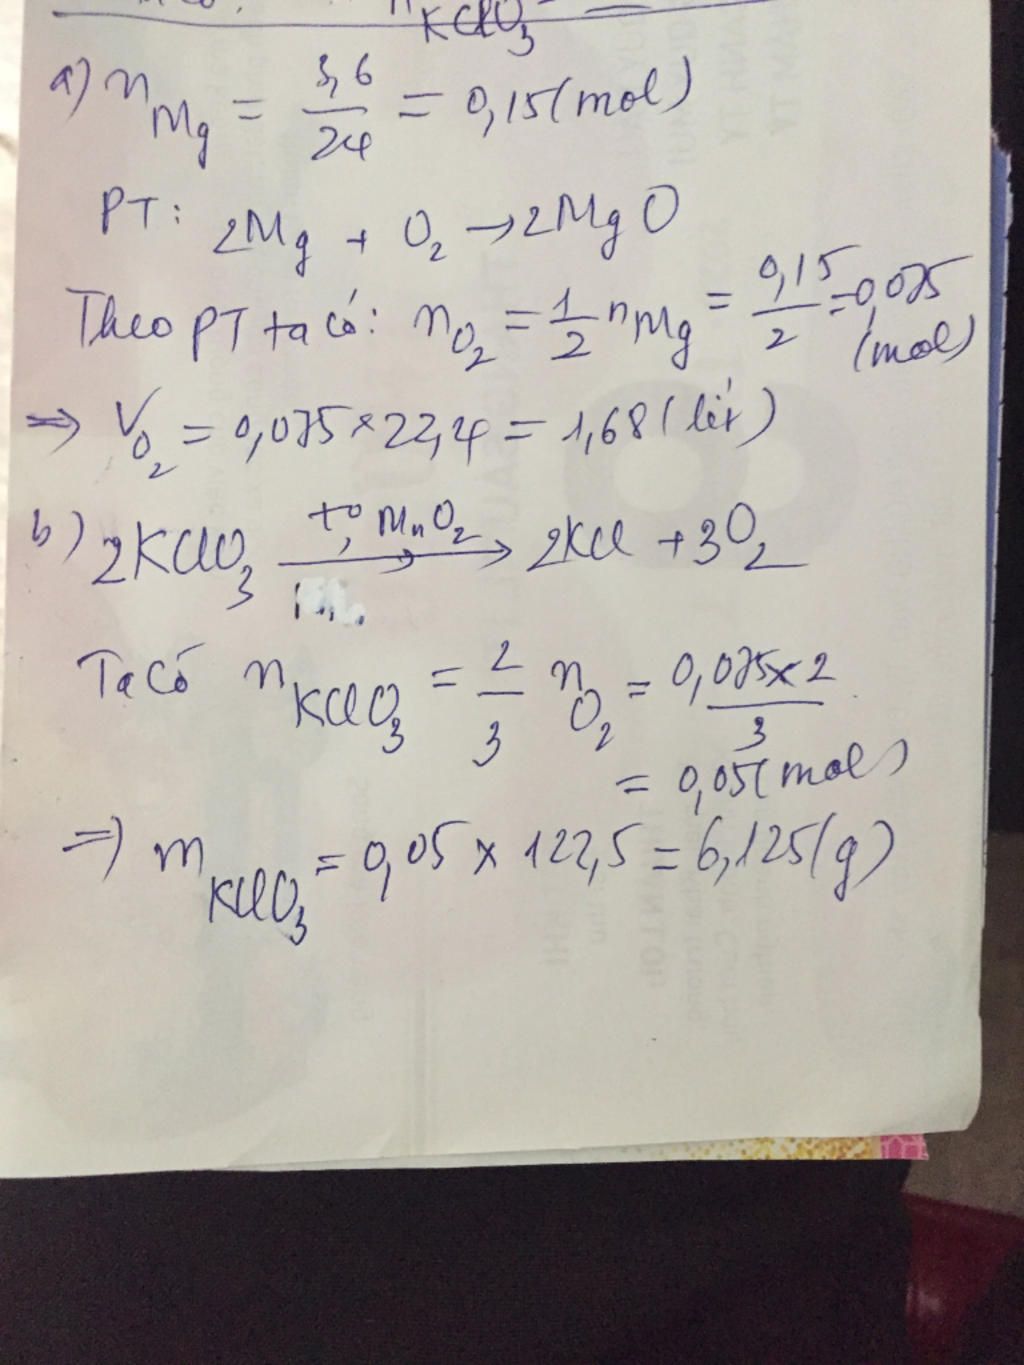 n KClO3 =
a) nMg = 3,6/24 = 0,15(mol)
PT: 2Mg + O2 → 2MgO
Theo PT ta có: nO2 = 1/2 nMg = 0,15/2 = 0,075 (mol)
⇒ VO2 = 0,075 × 22,4 = 1,68 (lít)
b) 2KClO3 t°, MnO2 → 2KCl + 3O2
Ta có nKClO3 = 2/3 nO2 = 0,075 × 2/3
= 0,05(mol)
⇒ mKClO3 = 0,05 × 122,5 = 6,125(g)